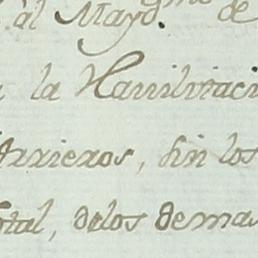 al Mayo. de
la Havilitaci
Arrieros, sin los
tal, delos demas